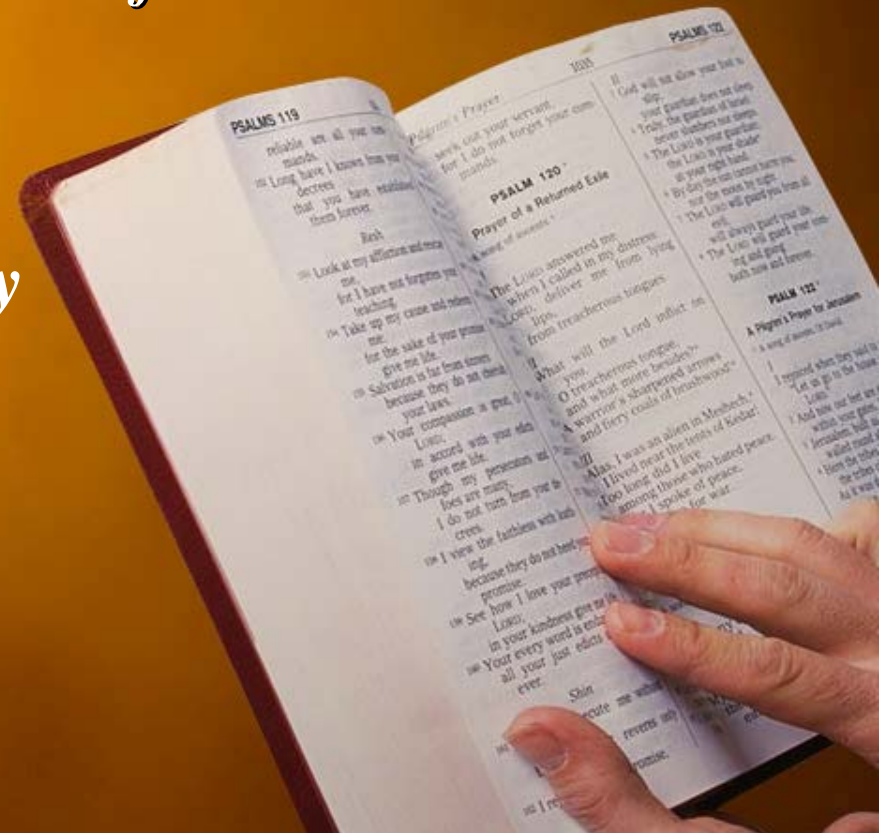 y
PSALMS 119
reliable are all your com-
mands.
Long have I known from your
decrees
that you have established
them forever.
Resh
Look at my affliction and rescue
me,
for I have not forgotten your
teaching.
Take up my cause and redeem
me,
for the sake of your promise
give me life.
Salvation is far from sinners
because they do not cherish
your laws.
Your compassion is great, O
LORD;
in accord with your edicts
give me life.
Though my persecutors and
foes are many,
I do not turn from your de-
crees.
I view the faithless with loath-
ing,
because they do not heed your
promise.
See how I love your precepts,
LORD;
in your kindness give me life.
Your every word is
all your just edicts
ever.
Shin
me without
reveres only
promise,
1035
Pilgrim's Prayer
seek out your servant,
for I do not forget your com-
mands.
PSALM 120
Prayer of a Returned Exile
A song of ascents.
The LORD answered me
when I called in my distress:
LORD, deliver me from lying
lips,
from treacherous tongues
II
What will the Lord inflict on
you,
O treacherous tongue,
and what more besides?
A warrior's sharpened arrows
and fiery coals of brushwood!
III
Alas, I was an alien in Meshech,
I lived near the tents of Kedar!
Too long did I live
among those who hated peace.
I spoke of peace,
for war
PSALMS 122
II
God will not allow your foot to
slip;
your guardian does not sleep.
Truly, the guardian of Israel
never slumbers nor sleeps.
The LORD is your guardian;
the LORD is your shade
at your right hand.
By day the sun cannot harm you,
nor the moon by night.
The LORD will guard you from all
evil,
will always guard your life.
The LORD will guard your com-
ing and going
both now and forever.
PSALM 122
A Pilgrim's Prayer for Jerusalem
A song of ascents. Of David.
I
I rejoiced when they said to
"Let us go to the house
LORD.
And now our feet are
within your gates,
Jerusalem, built
walled round
Here the tribes
the tribes
As it was